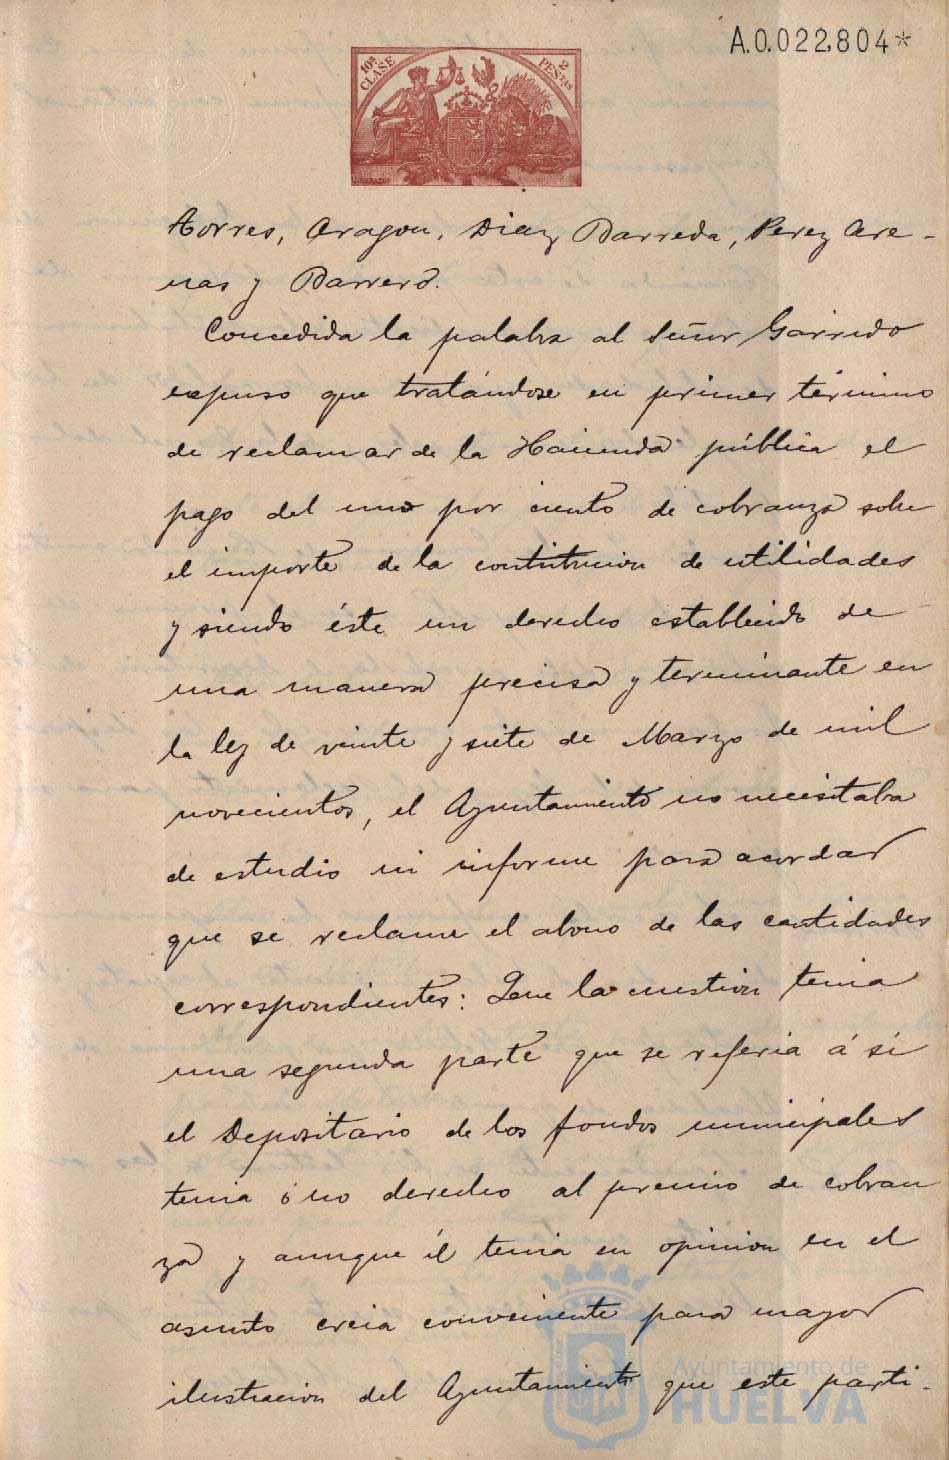 A.0.022,804*
10ª CLASE
2 PESTAS
Torres, Aragon, Diaz Barreda, Perez Are-
nas y Barrero.
Concedida la palabra al Señor Garrido
expuso que tratándose en primer término
de reclamar de la Hacienda pública el
pago del uno por ciento de cobranza sobre
el importe de la contribucion de utilidades
y siendo éste un derecho establecido de
una manera precisa y terminante en
la ley de veinte y siete de Marzo de mil
novecientos, el Ayuntamiento no necesitaba
de estudio ni informe para acordar
que se reclame el abono de las cantidades
correspondientes: Que la cuestion tenia
una segunda parte que se referia á si
el Depositario de los fondos municipales
tenia ó no derecho al premio de cobran
za y aunque él tenia su opinion en el
asunto creia conveniente para mayor
ilustracion del Ayuntamiento que este parti-
Ayuntamiento de
HUELVA